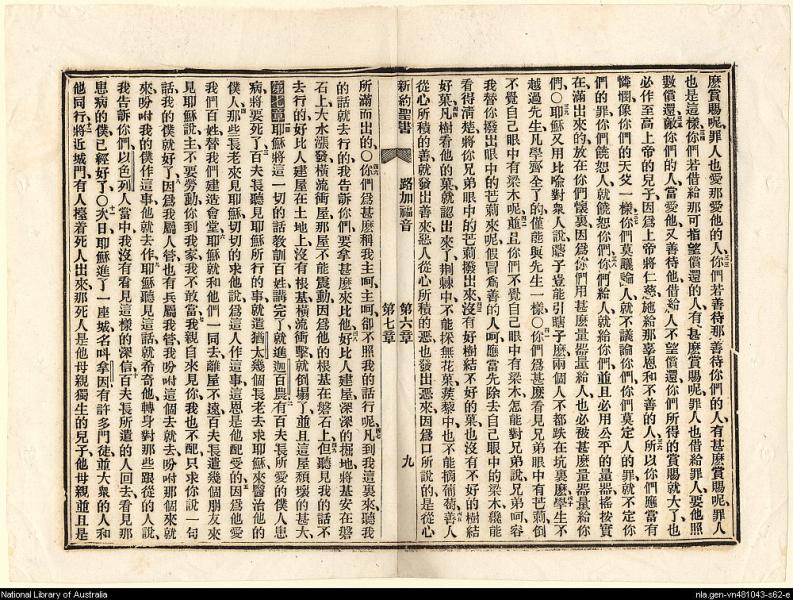 麽賞賜呢罪人也愛那愛他的人你們若善待那善待你們的人有甚麽賞賜呢罪人
也是這樣你們若借給那可指望償還的人有甚麽賞賜呢罪人也借給罪人要他照
數償還敵你們的人當愛他又善待他借給人不望償還你們所得的賞賜就大了也
必作至高上帝的兒子因爲上帝將仁慈施給那辜恩和不善的人所以你們應當有
憐憫像你們的天父一樣你們莫議論人就不議論你們你們莫定人的罪就不定你
們的罪你們饒恕人就饒恕你們你們給人就給你們並且必用公平的量器搖按實
在滿出來的放在你們懷裏因爲你們用甚麽量器量給人也必被甚麽量器量給你
們〇耶穌又用比喻對衆人說瞎子豈能引瞎子麽兩個人不都跌在坑裏麽學生不
越過先生凡學齊全了的僅能與先生一樣〇你們爲甚麽看見兄弟眼中有芒莿倒
不覺自己眼中有梁木呢並且你們不覺自己眼中有梁木怎能對兄弟說兄弟呵容
我替你撥出眼中的芒莿來呢假冒爲善的人呵應當先除去自己眼中的梁木纔能
看得淸楚將你兄弟眼中的芒莿撥出來沒有好樹結不好的菓也沒有不好的樹結
好菓凡樹看他的菓就認出來了荆棘中不能採無花菓蒺藜中也不能摘葡萄善人
從心所積的善就發出善來惡人從心所積的惡也發出惡來因爲口所說的是從心
新約聖書 路加福音 第六章 第七章 九
所滿而出的〇你們爲甚麽稱我主呵主呵卻不照我的話行呢凡到我這裏來聽我
的話就去行的我告訴你們要拿甚麽來比他好比人建屋深深的掘地將基安在磐
石上大水漲發橫流衝屋那屋不能震動因爲他的根基在磐石上但聽見我的話不
去行的好比人建屋在土地上沒有根基橫流衝擊就倒塌了並且這屋頹壞的甚大
第七章耶穌將這一切的話教訓百姓講完了就進迦百農有百夫長所愛的僕人患
病將要死了百夫長聽見耶穌所行的事就遣猶太幾個長老去求耶穌來醫治他的
僕人那些長老來見耶穌切切的求他說爲這人作這事這恩是他配受的因爲他愛
我們百姓替我們建造會堂耶穌就和他們一同去離屋不遠百夫長遣幾個朋友來
見耶穌說主不要勞動你到我家我不敢當我親自來見你我也不配只求你說一句
話我的僕就好了因爲我屬人管也有兵屬我管我吩咐這個去就去吩咐那個來就
來吩咐我的僕作這事他就去作耶穌聽見這話就希奇他轉身對那些跟從的人說
我告訴你們以色列人當中我沒有看見這樣的深信百夫長所遣的人回去看見那
患病的僕已經好了〇次日耶穌進了一座城名叫拿因有許多門徒並大衆的人和
他同行將近城門有人擡着死人出來那死人是他母親獨生的兒子他母親並且是
National Library of Australia
nla.gen-vn481043-s62-e